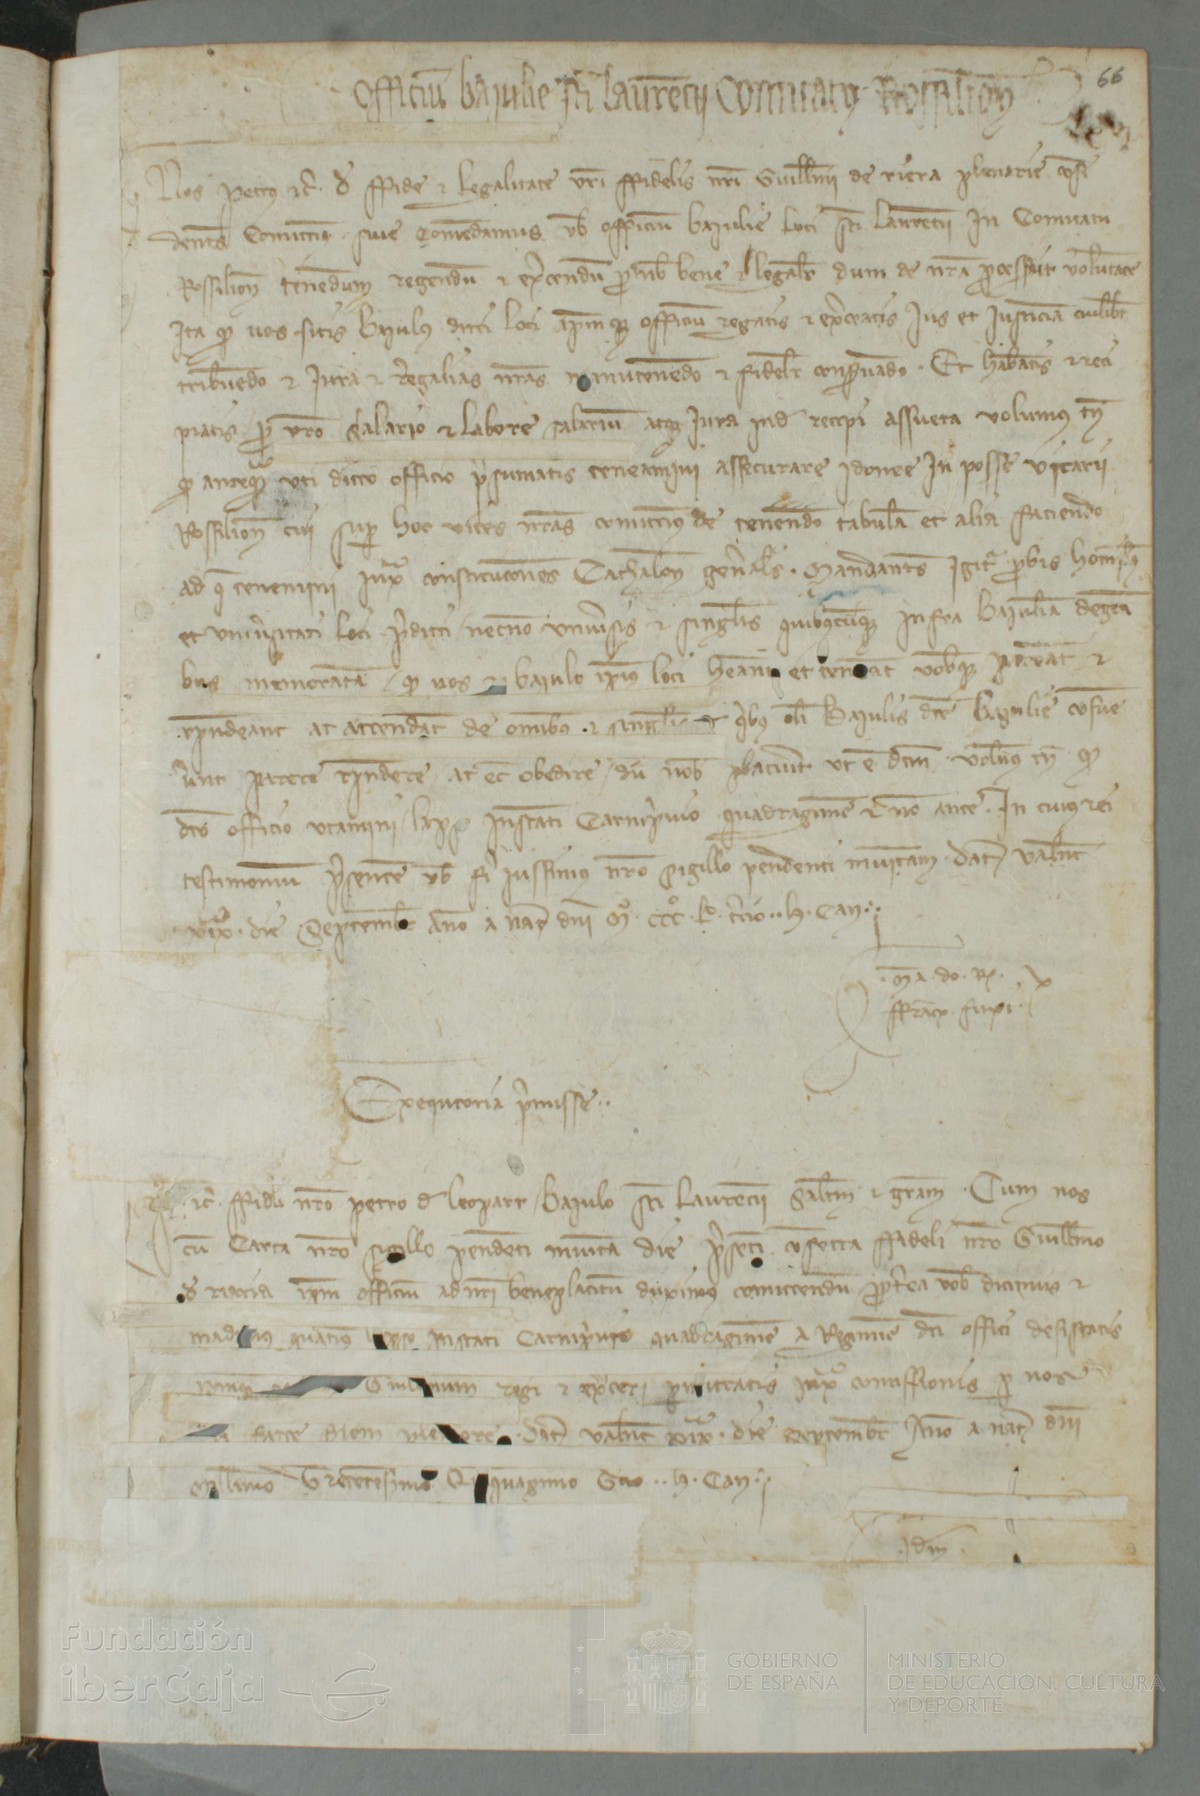 66
Officiu baiulie sci Laurencii Comitatus Rossilion
Nos Petrus etc. de ffide et legalitate vri ffidelis nri Guillmi de riera plenarie confi
dentes Comittim sive comendamus vob officium baiulie loci sci Laurencii in Comitatu
Rossilion tenendum regendum et exercendum p vos bene et legalr dum de nra pcesserit voluntate
Ita q vos sitis baiulus dicti loci ipmq officium regatis et exerceatis Jus et Justiciam cuilibet
tribuendo et Jura et regalias nras manutenendo et fidelr conservando. Et habeatis et reci
piatis p vro salario et labore salarium atq Jura inde recepi assueta volumus tn
q anteq uti dicto officio psumatis teneamini assecurare idonee in posse vicarii
Rossilion cui sup hoc vices nras comittimus de tenendo tabulam et alia faciendo
ad q tenemini iuxta constituciones Cathalon generales. Mandantes igitr pbis hominibus
et universitati loci pdicti necno universis et singulis quibuscumq infra baiuliam degenti
bus memoratam q vos p baiulo ipius loci heant et teneant vobisq pareant et
rpondeant ac attendant de omibus et singulis quibus oli Baiulis dce baiulie consue
verunt parere respondere ac ec obedire dum nob placuerit ut e dcm. volumus tn q
dco officio utamini lapso instanti Carniprivio quadragesime et no ante. In cuius rei
testimonium psentem vob fi iussimus nro sigillo pendenti munitam. Dat Valent
xix die Septembr Anno a nat dni Mo CCCo Lo tcio. H. Can.
Ma. do. R.
ffranc
Exequtoria pmisse
etc. ffideli nro Petro de leopart baiulo sci Laurencii saltm et gram. Cum nos
cu Carta nro sigillo pendenti munita die psenti confecta ffideli nro Guillmo
de riaria ipm officium ad nri beneplacitum duximus comittendum pterea vob dicimus et
mandamus quatenus lapso instanti Carniprivio quadragesime a Regimine dci offici desistatis
Guillmum regi et exerceri pmittatis iuxta comissionis p nos
facte Dat Valent xix die Septembr Anno a nat dni
millmo Trecentesimo Quinquagesimo Tcio. H. Can.
Idem
Fundación
iberCaja
GOBIERNO
DE ESPAÑA
MINISTERIO
DE EDUCACIÓN, CULTURA
Y DEPORTE